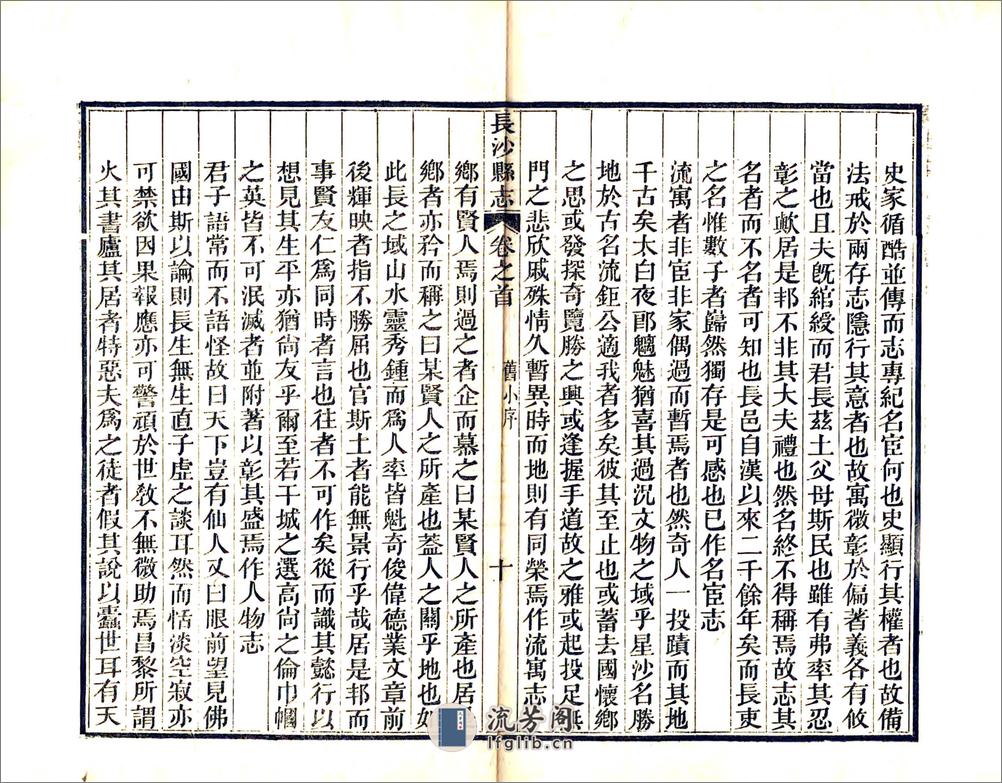 史家循酷並傳而志專紀名宦何也史顯行其權者也故備
法戒於兩存志隱行其意者也故寓微彰於偏著義各有攸
當也且夫旣綰綬而君長茲土父母斯民也雖有弗率其忍
彰之歟居是邦不非其大夫禮也然名終不得稱焉故志其
名者而不名者可知也長邑自漢以來二千餘年矣而長吏
之名惟數子者巋然獨存是可感也已作名宦志
流寓者非宦非家偶過而暫焉者也然奇人一投蹟而其地
千古矣太白夜郎魑魅猶喜其過況文物之域乎星沙名勝
地於古名流鉅公適我者多矣彼其至止也或蓄去國懷鄉
之思或發探奇覽勝之興或逢握手道故之雅或起投足無
門之悲欣戚殊情久暫異時而地則有同榮焉作流寓志
長沙縣志
卷之首
舊小序
十
鄉有賢人焉則過之者企而慕之曰某賢人之所產也居
鄉者亦矜而稱之曰某賢人之所產也蓋人之關乎地也如
此長之域山水靈秀鍾而爲人率皆魁奇俊偉德業文章前
後輝映者指不勝屈也官斯土者能無景行乎哉居是邦而
事賢友仁爲同時者言也往者不可作矣從而識其懿行以
想見其生平亦猶尙友乎爾至若干城之選高尙之倫巾幗
之英皆不可泯滅者並附著以彰其盛焉作人物志
君子語常而不語怪故曰天下豈有仙人又曰眼前望見佛
國由斯以論則長生無生直子虛之談耳然而恬淡空寂亦
可禁欲因果報應亦可警頑於世敎不無微助焉昌黎所謂
火其書廬其居者特惡夫爲之徒者假其說以蠹世耳有天
流芳閣
lfglib.cn